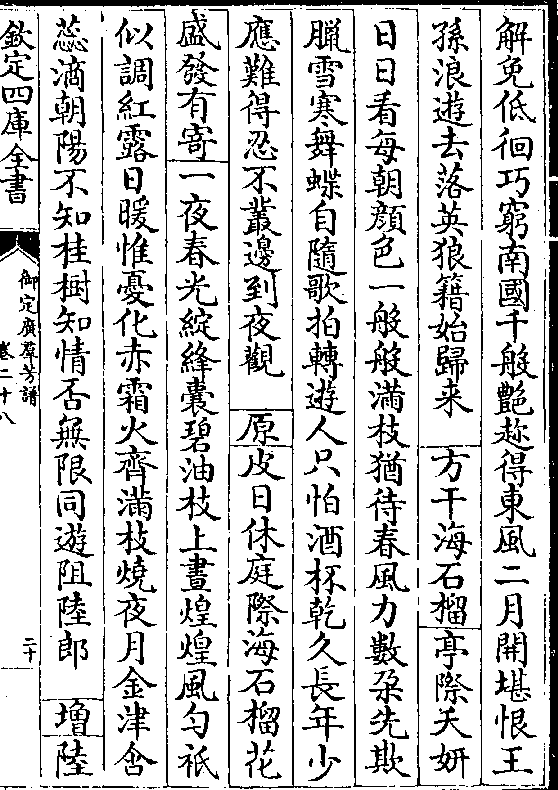 解免低徊巧窮南國千般艶趂得東風二月開堪恨王
孫浪遊去落英狼籍始歸来　方干海石榴亭際夭妍
日日看每朝顔色一般般滿枝猶待春風力數朶先欺
臘雪寒舞蝶自隨歌拍轉遊人只怕酒杯乾久長年少
應難得忍不叢邊到夜觀　原皮日休庭際海石榴花
盛發有寄一夜春光綻絳囊碧油枝上晝煌煌風勻秪
似調紅露日暖惟憂化赤霜火齊滿枝燒夜月金津含
蕊滴朝陽不知桂樹知情否無限同遊阻陸郎　增陸
欽定四庫全書
御定廣羣芳譜
卷二十八
二十